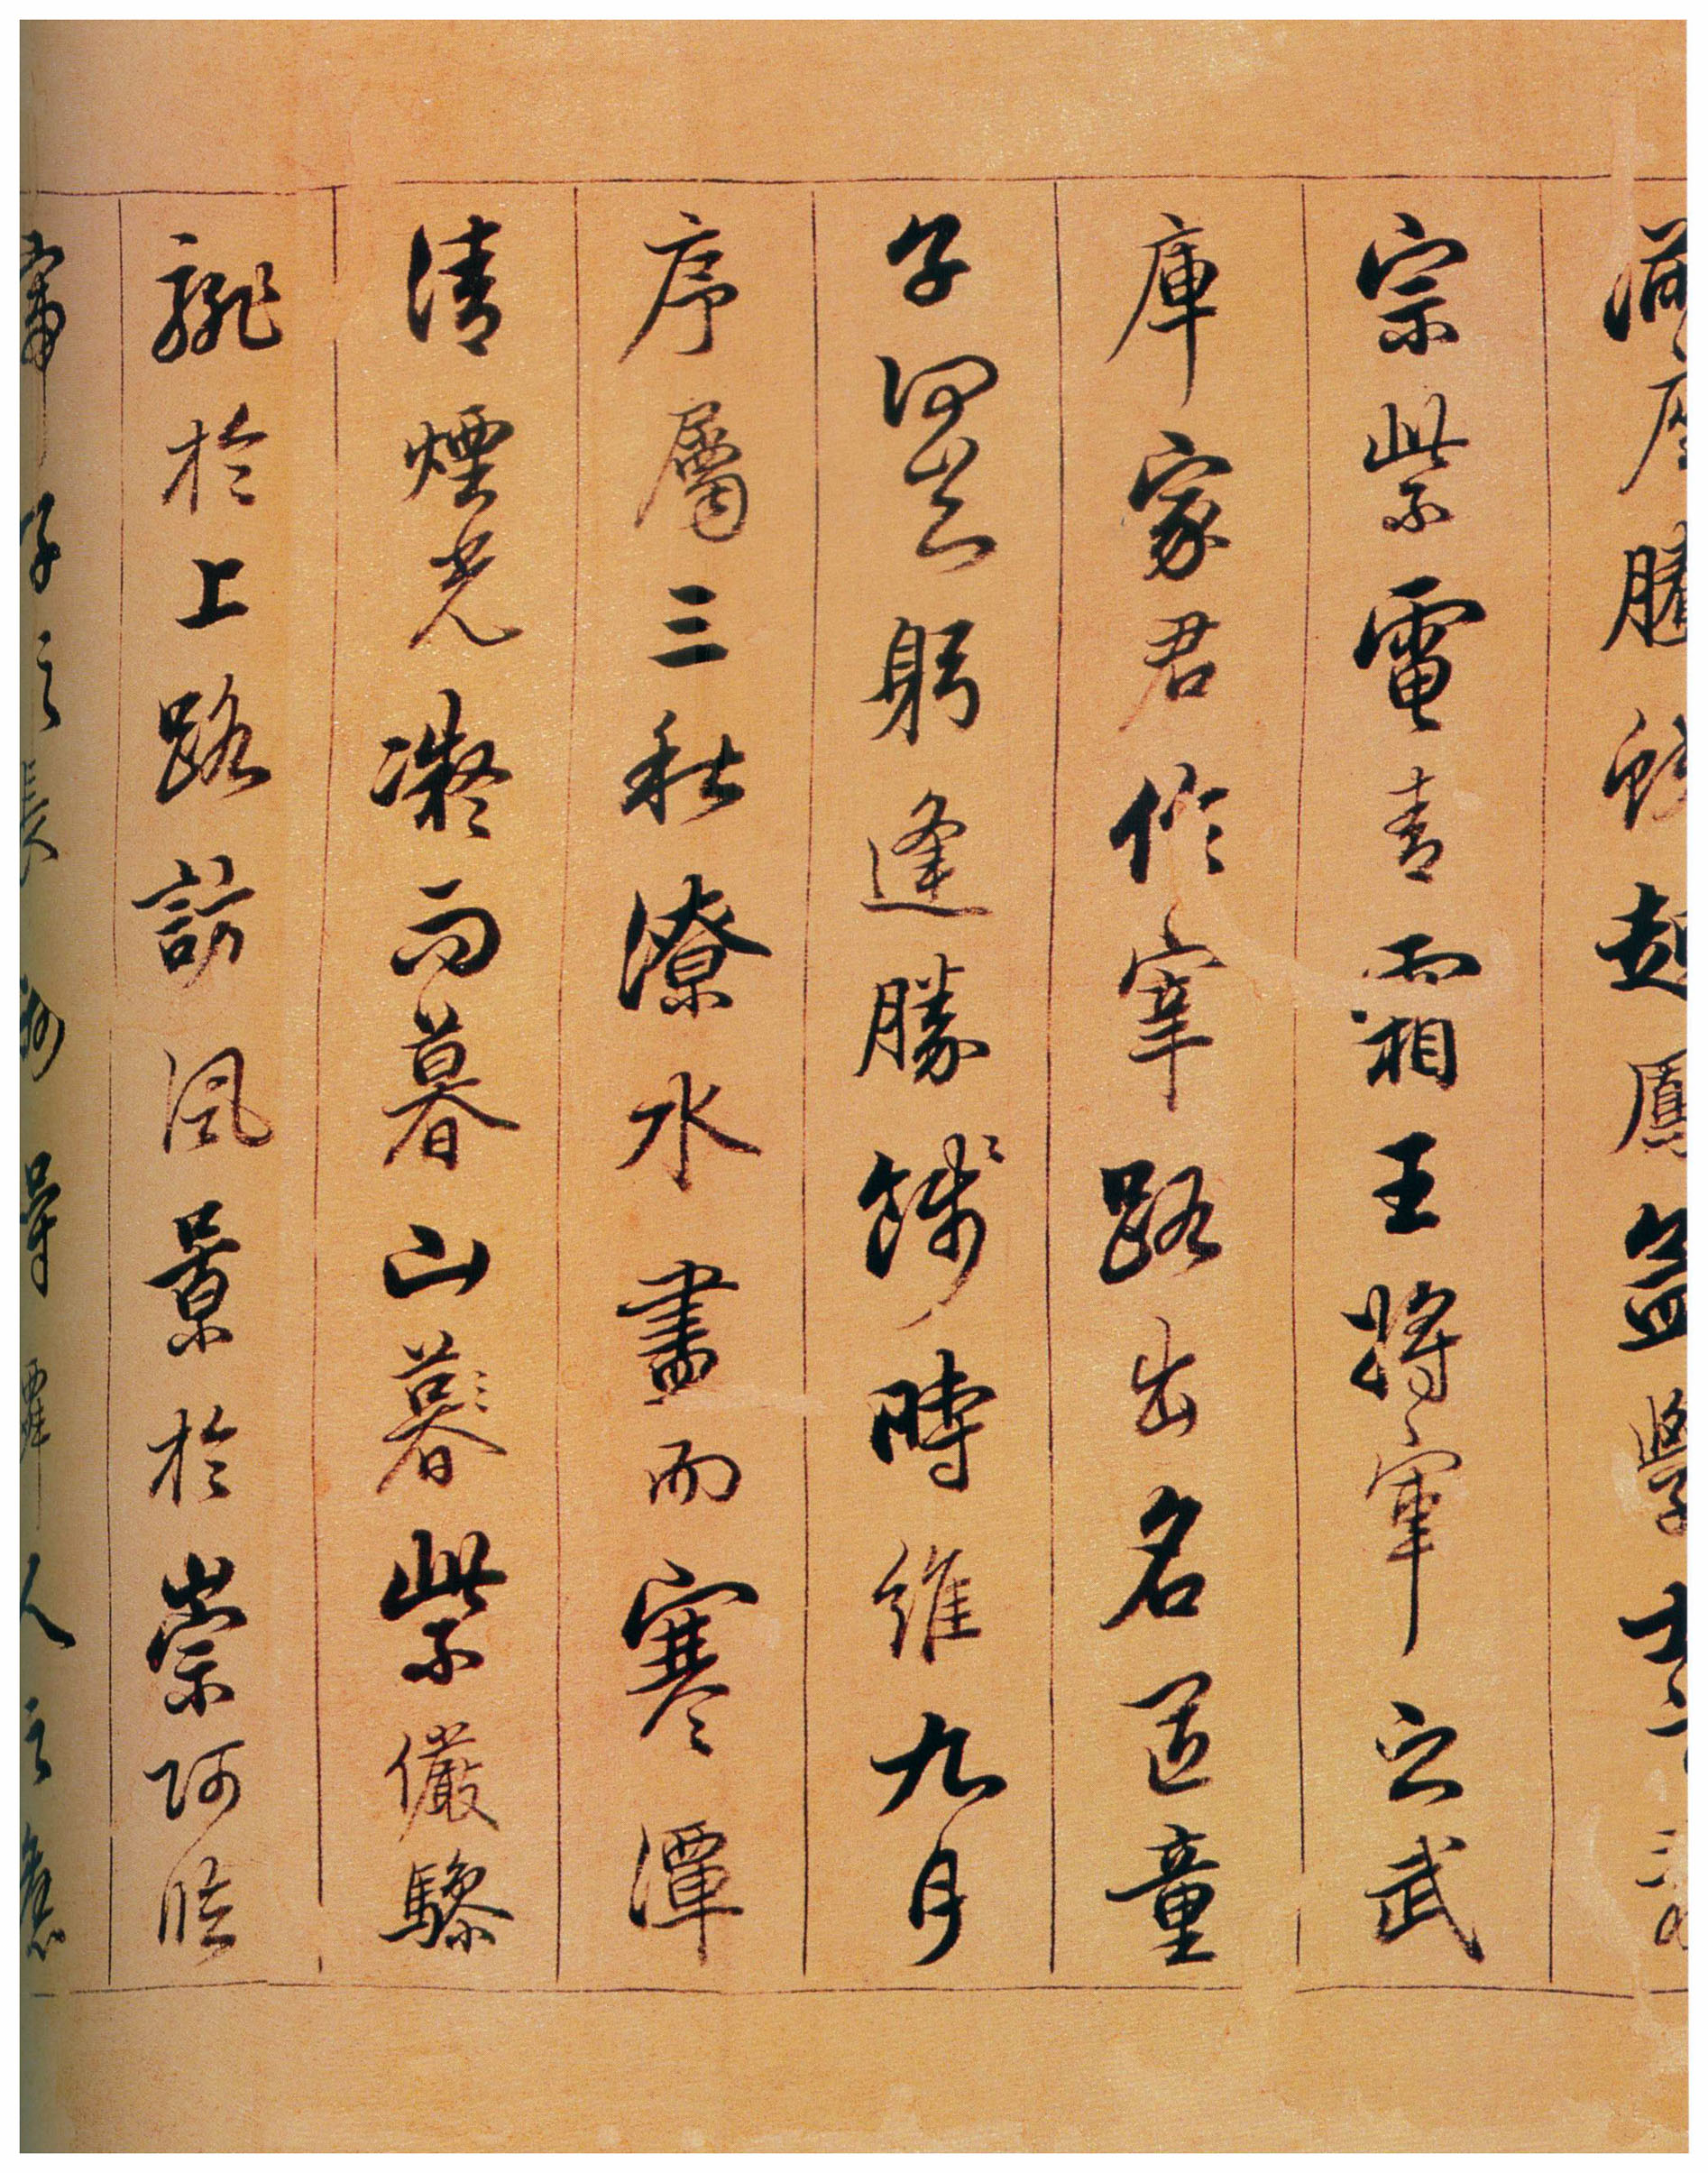 滿座騰蛟起鳳孟學士之詞
宗紫電青霜王將軍之武
庫家君作宰路出名區童
子何躬逢勝餞時維九月
序屬三秋潦水盡而寒潭
清煙光凝而暮山暮紫儼驂
騑於上路訪風景於崇阿臨
帝子之長洲得僊人之舊